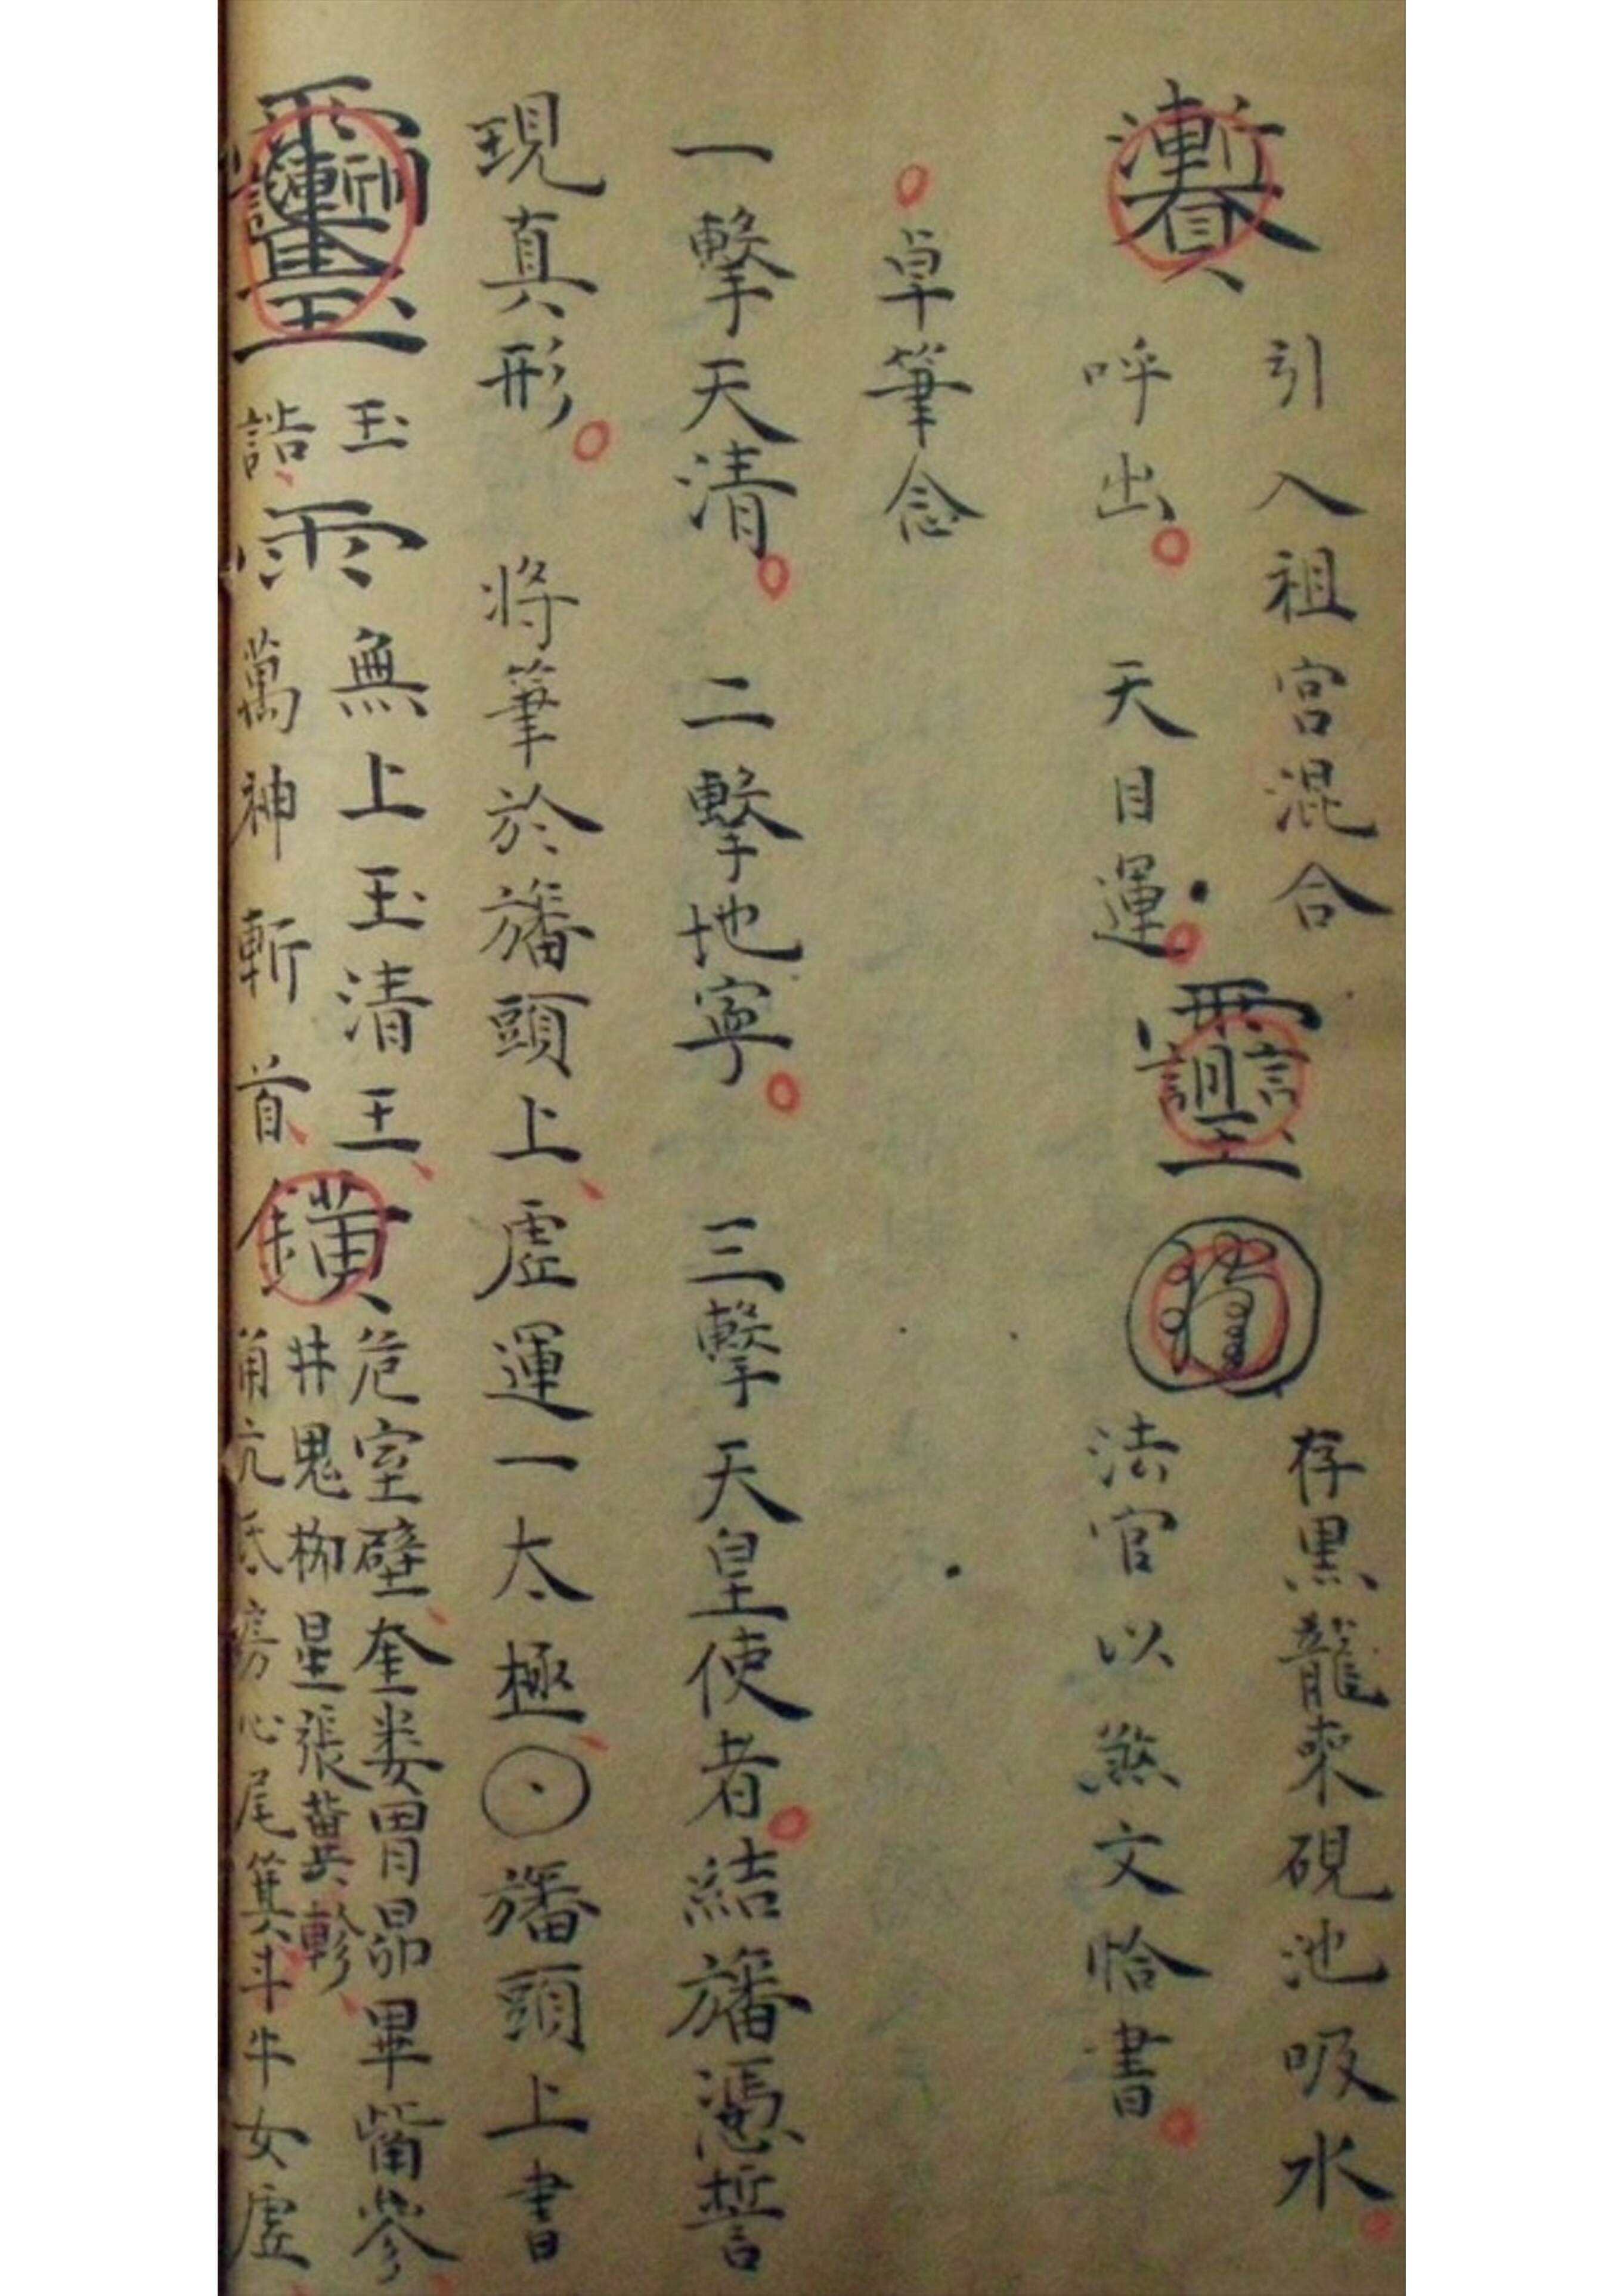 引入祖宮混合
呼出。天目運。
存黑龍來硯池吸水。
法官以煞文恰書。
卓筆念
一擊天清。二擊地寧。三擊天皇使者。結旛憑誓
現真形。將筆於旛頭上、虛運一太極、旛頭上書
玉
誥、
無上玉清王、
萬神斬首、
危室壁、奎娄胃昴畢觜參
井鬼柳星張翼軫、
角亢氐房心尾箕斗牛女虛